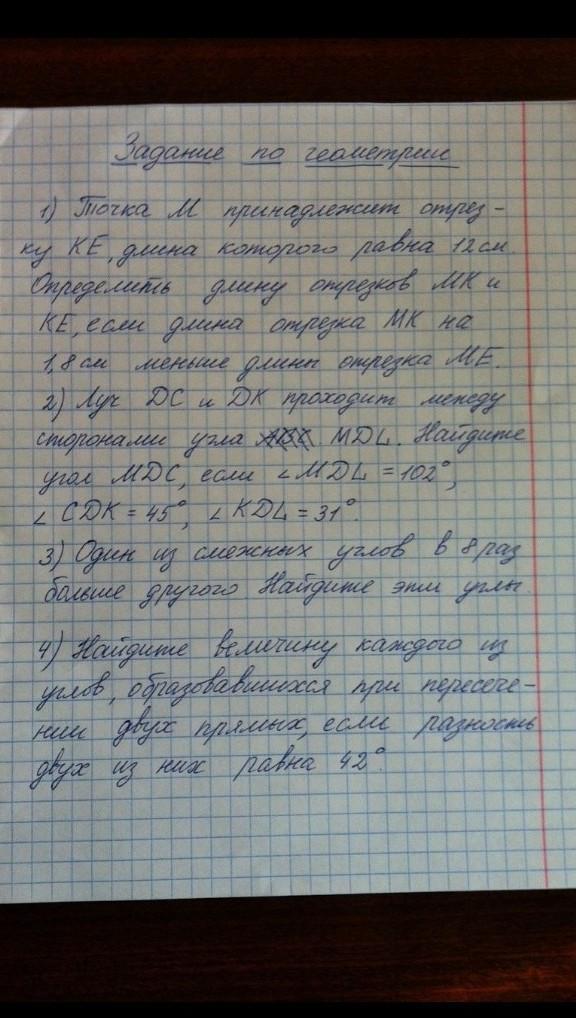 Задание по геометрии
1) Точка М принадлежит отрез-
ку КЕ, длина которого равна 12 см.
Определить длину отрезков МК и
КЕ, если длина отрезка МК на
1,8 см меньше длины отрезка МЕ.
2) Луч DC и DK проходит между
сторонами угла MDL. Найдите
угол MDC, если ∠MDL = 102°,
∠CDK = 45°, ∠KDL = 31°.
3) Один из смежных углов в 8 раз
больше другого Найдите эти углы.
4) Найдите величину каждого из
углов, образовавшихся при пересече-
нии двух прямых, если разность
двух из них равна 42°.